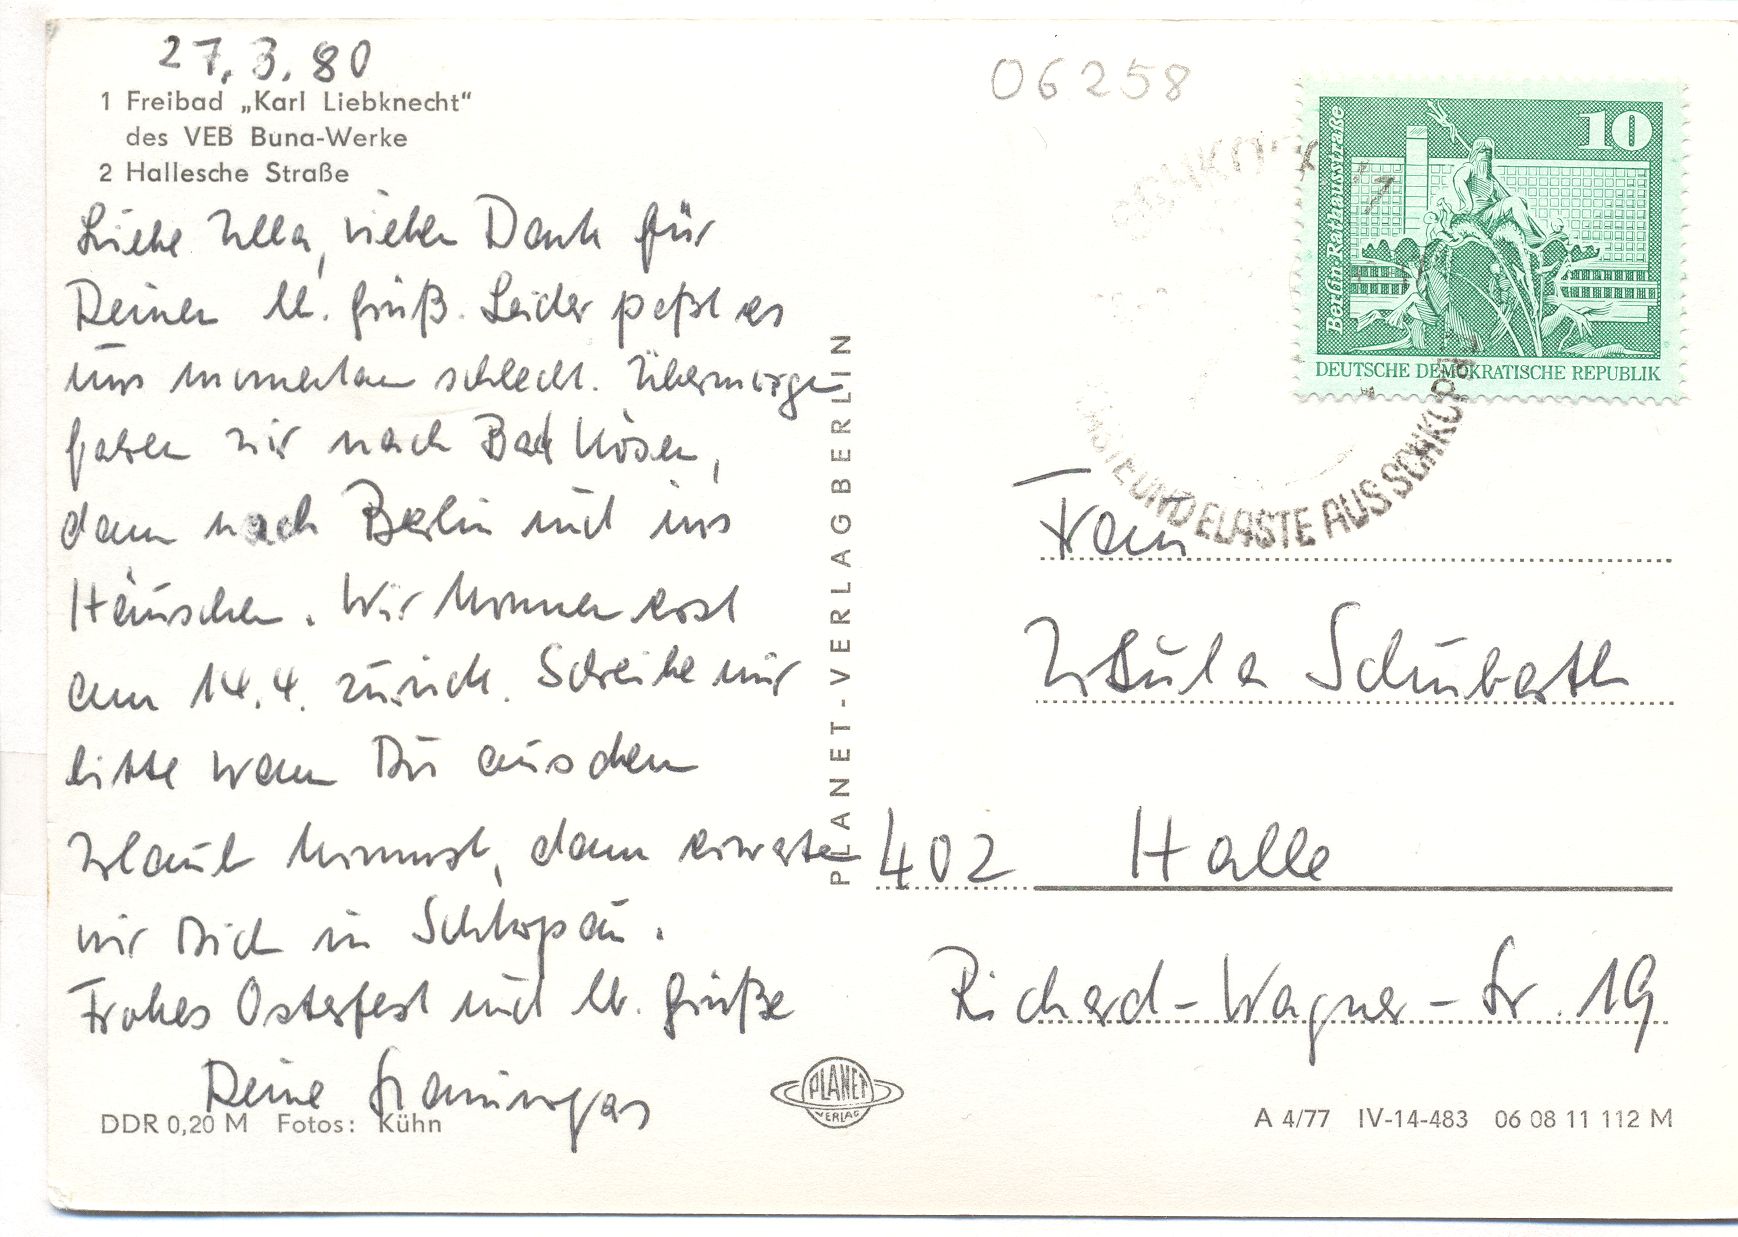 27.3.80
1 Freibad „Karl Liebknecht“
des VEB Buna-Werke
2 Hallesche Straße
Liebe Ulla, vielen Dank für
Deinen lb. Gruß. Leider paßt es
uns momentan schlecht. Übermorgen
fahren wir nach Bad Kösen,
dann nach Berlin und ins
Häuschen. Wir kommen erst
am 14.4. zurück. Schreibe mir
bitte wann Du aus dem
Urlaub kommst, dann erwarten
wir Dich in Schkopau.
Frohes Osterfest und lb. Grüße
Deine
DDR 0,20 M Fotos: Kühn
PLANET-VERLAG BERLIN
PLANET
VERLAG
06258
10
Berlin Rathausstraße
DEUTSCHE DEMOKRATISCHE REPUBLIK
UND ELASTE AUS SCHKOPAU
Frau
Ursula Schubarth
402 Halle
Richard-Wagner-Str. 19
A 4/77 IV-14-483 06 08 11 112 M